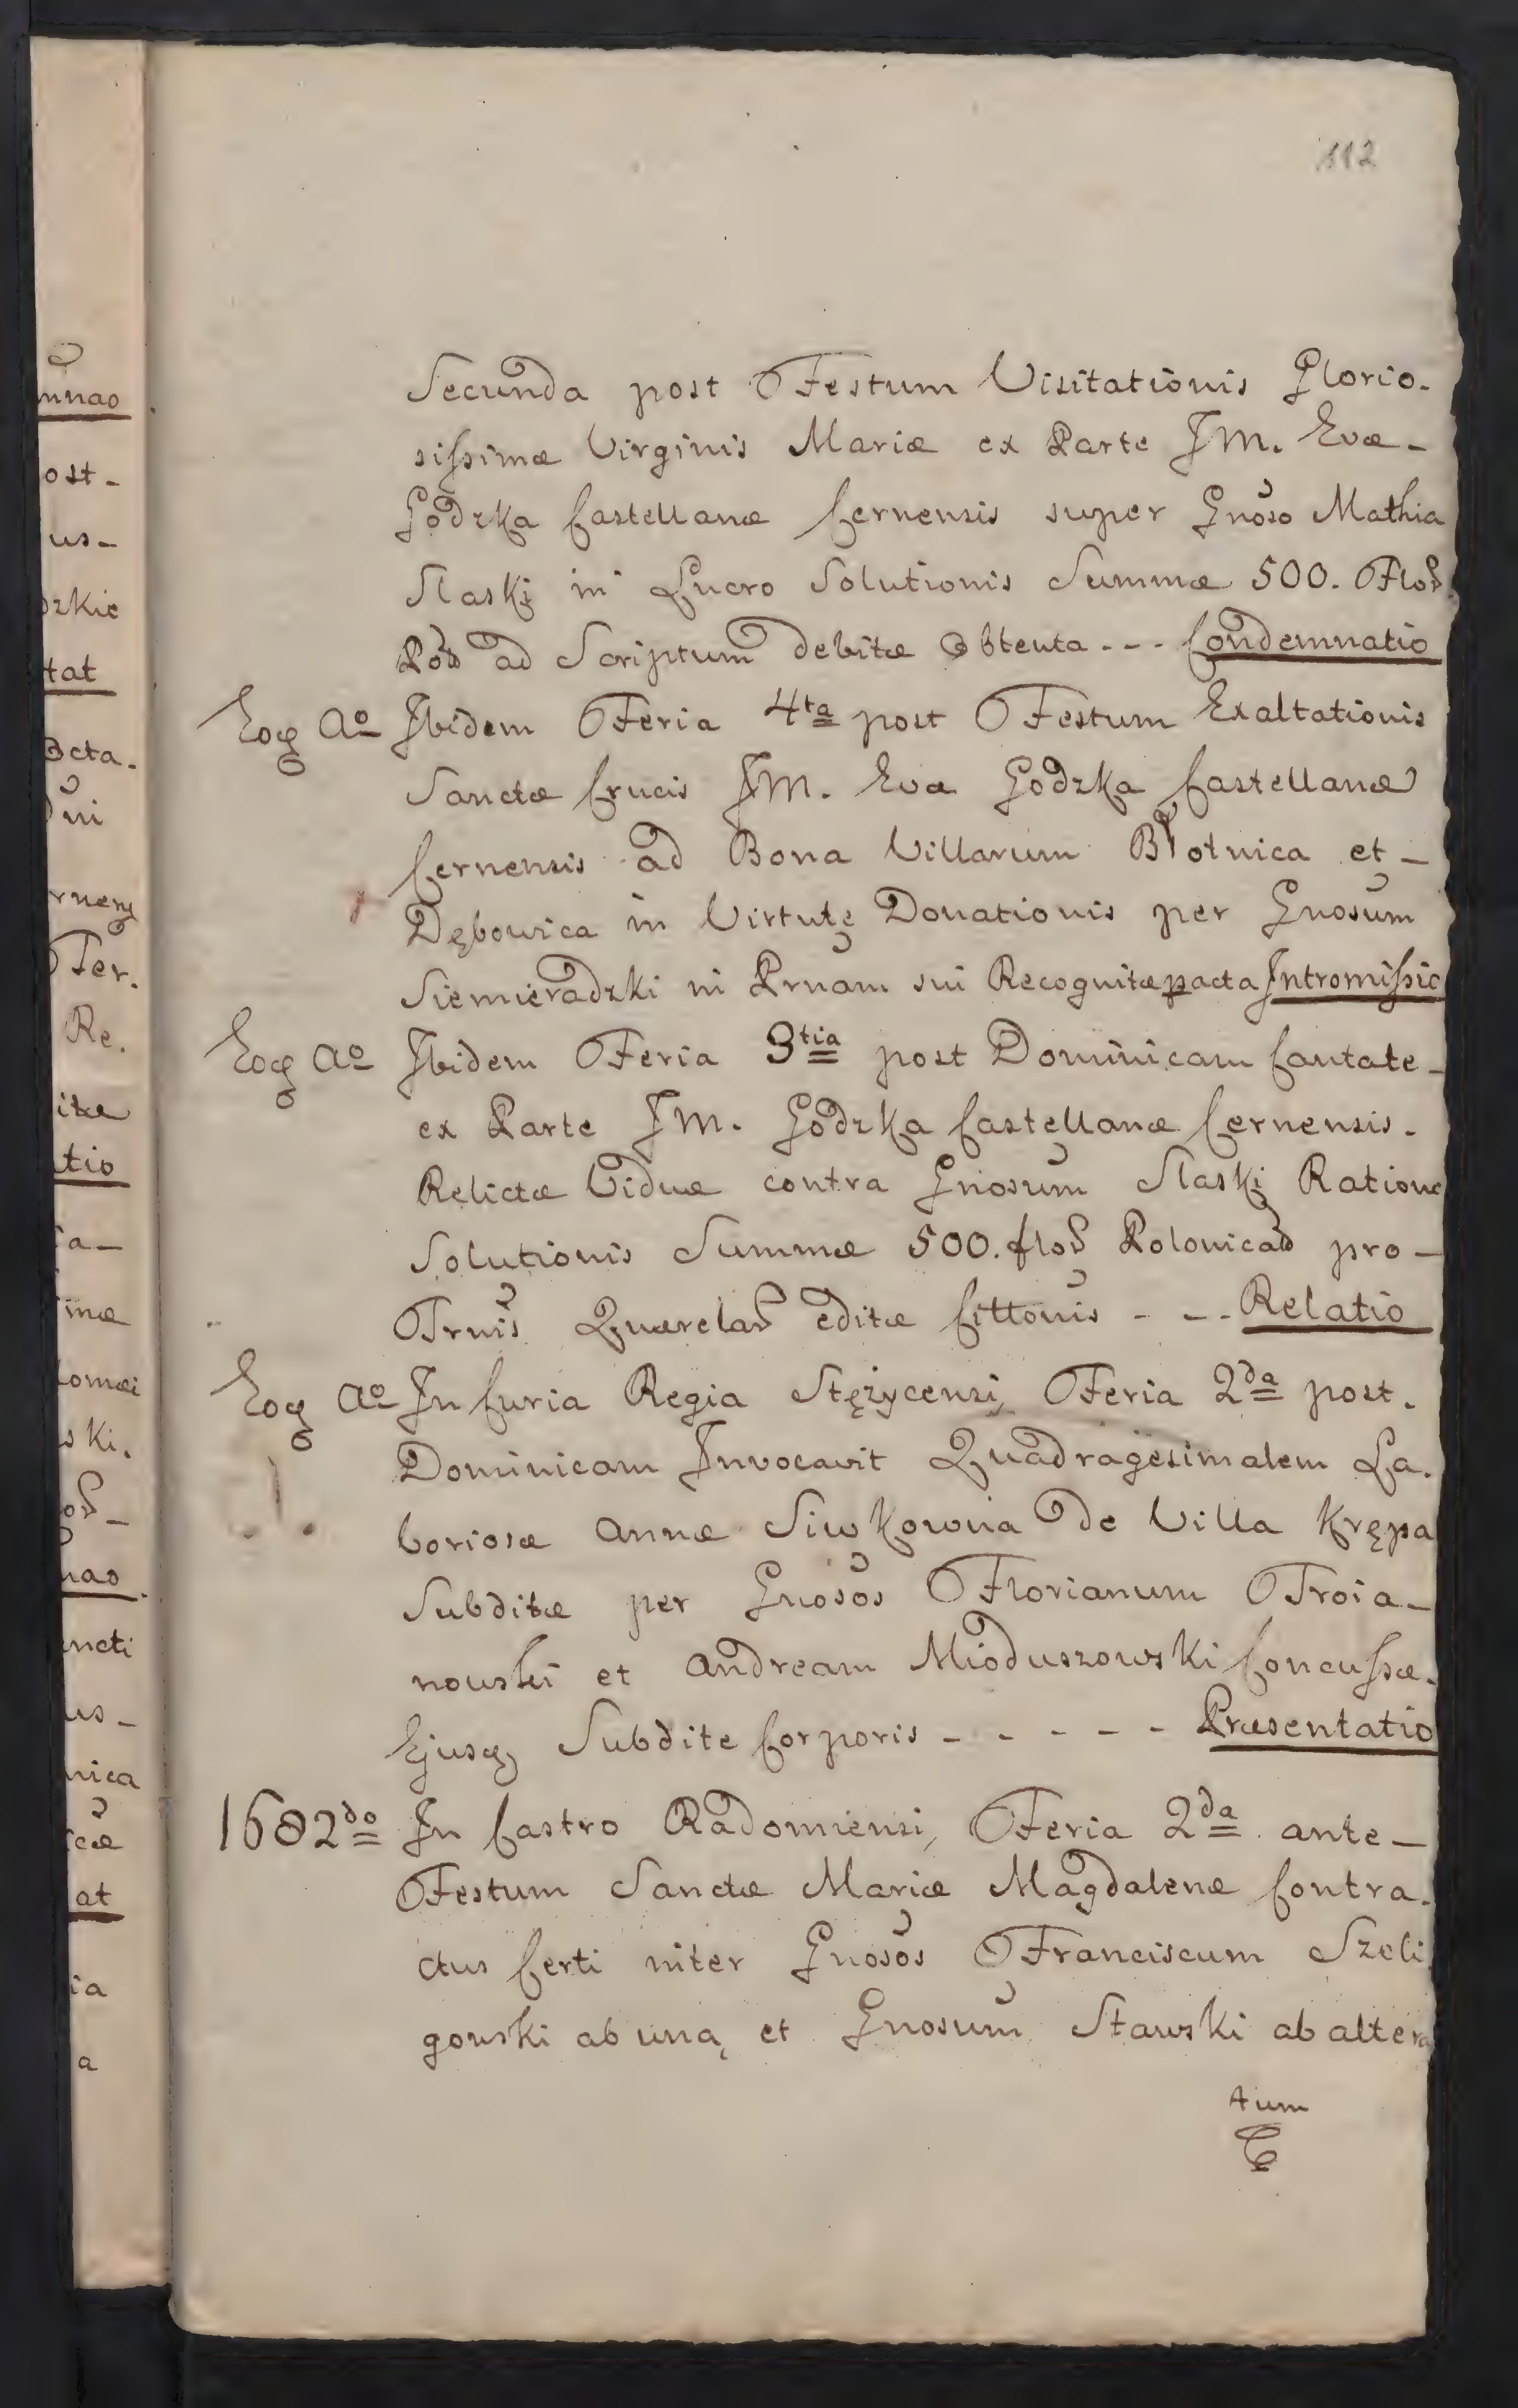 112
Secunda post Festum Visitationis Glorio-
sissimæ Virginis Mariæ ex Parte JM. Evæ
Godzka Castellanæ Cernensis super Gnoso Mathia
Slaski in Lucro Solutionis Summæ 500. Flor
Pol ad Scriptum debitæ Obtenta --- Condemnatio
Eoq Ao Ibidem Feria 4ta post Festum Exaltationis
Sanctæ Crucis JM. Eva Godzka Castellanæ
Cernensis ad Bona Villarum Błotnica et
Dębowica in Virtute Donationis per Gnosum
Siemieradzki in Prnam sui Recognitæ pacta Intromissio
Eoq Ao Ibidem Feria 3tia post Dominicam Cantate
ex Parte JM. Godzka Castellanæ Cernensis.
Relictæ Viduæ contra Gnosum Slaski Ratione
Solutionis Summæ 500. flor Polonicar pro
Trnis Querelar editæ Cittonis - -- Relatio
Eoq Ao In Curia Regia Stężycensi, Feria 2da post.
Dominicam Invocavit Quadragesimalem La-
boriosæ Annæ Siwkowna de Villa Krępa
Subditæ per Gnosos Florianum Troia-
nowski et Andream Mioduszowski Concussæ.
Ejusq, Subdite Corporis - - - - - Præsentatio
1682do In Castro Radomiensi, Feria 2da ante
Festum Sanctæ Mariæ Magdalenæ Contra-
ctus Certi inter Gnosos Franciscum Szeli
gowski ab una, et Gnosum Stawski ab altera
tum